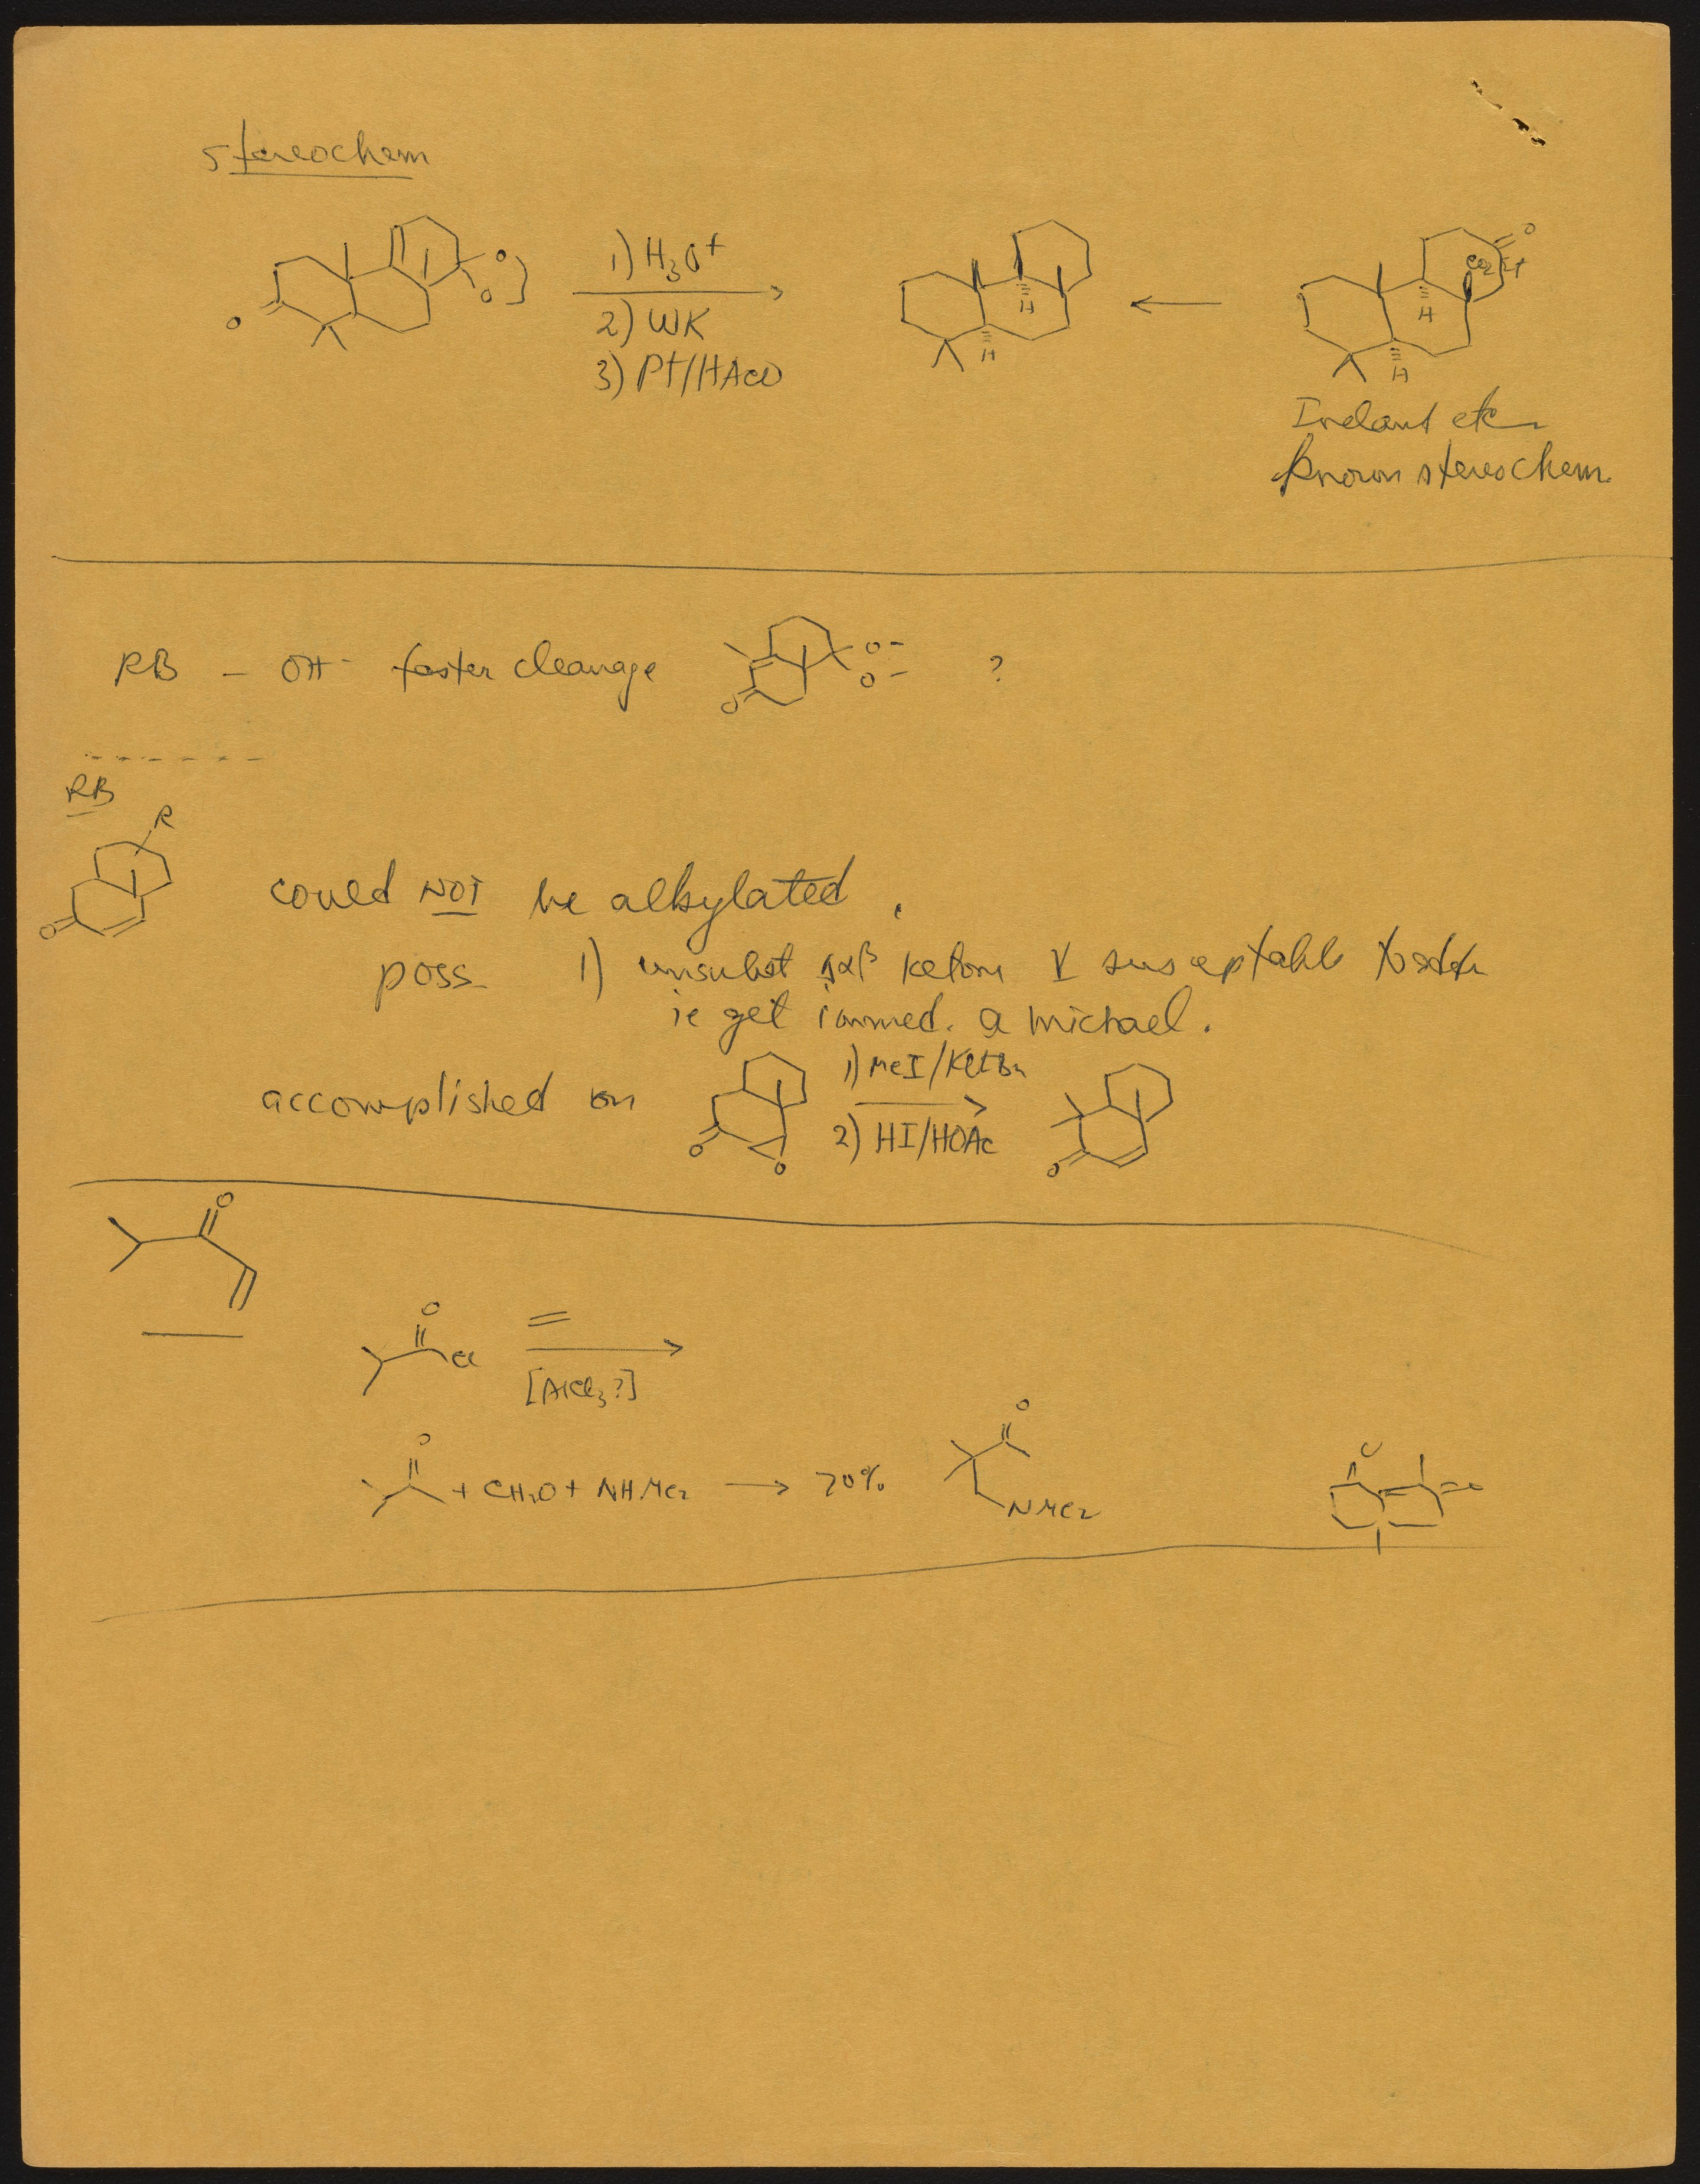 stereochem
1) H3O+
2) WK
3) Pt/HAcO
O
O
O
H
H
O
CO2Et
H
H
Ireland etc
known stereochem.
RB – OH- faster cleavage
O
O
O
?
RB
R
O
could NOT be alkylated.
poss 1) unsubst Δαβ ketone V susceptable
ie get immed. a michael.
accomplished on
O
O
1) MeI/KOtBu
2) HI/HOAc
O
O
O
Cl
=
[AlCl3?]
O
+ CH2O + NHMe2 → 70%
O
NMe2
O